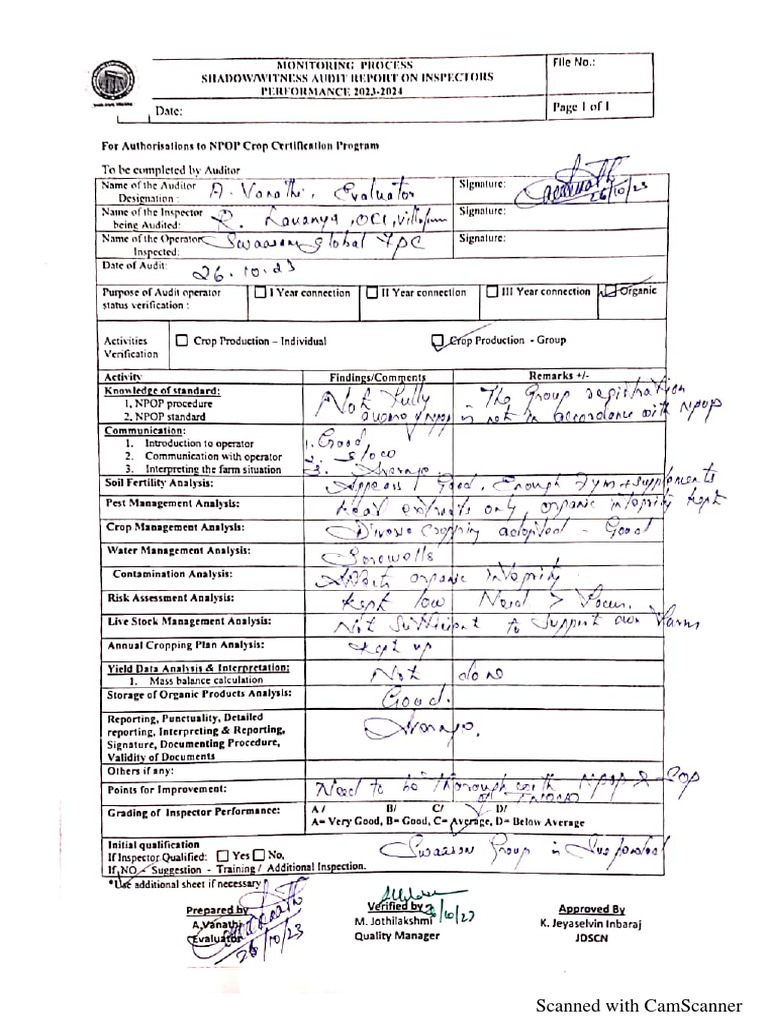 MONITORING PROCESS
SHADOW/WITNESS AUDIT REPORT ON INSPECTORS
PERFORMANCE 2023-2024
File No.:
Date:
Page 1 of 1
For Authorisations to NPOP Crop Certification Program
To be completed by Auditor
Name of the Auditor A. Vanathi, Evaluator Signature:
Designation : 26/10/23
Name of the Inspector R. Lavanya, OCI, Villupuram Signature:
being Audited:
Name of the Operator Swaasam Global FPC Signature:
Inspected:
Date of Audit: 26.10.23
Purpose of Audit operator I Year connection II Year connection III Year connection Organic
status verification :
Activities Crop Production – Individual Crop Production - Group
Verification
Activity Findings/Comments Remarks +/-
Knowledge of standard: Not fully The Group registration
1. NPOP procedure aware of NPOP is not in accordance with NPOP
2. NPOP standard
Communication:
1. Introduction to operator 1. Good
2. Communication with operator 2. Slow
3. Interpreting the farm situation 3. Average
Soil Fertility Analysis: Appears Good, Enough Fym + supplements
Pest Management Analysis: extracts only, organic integrity kept
Crop Management Analysis: Diverse cropping adopted - Good
Water Management Analysis: Borewells
Contamination Analysis: organic integrity
Risk Assessment Analysis: Kept low Need > Focus.
Live Stock Management Analysis: Not sufficient to support own Farm
Annual Cropping Plan Analysis: Kept up
Yield Data Analysis & Interpretation: Not done
1. Mass balance calculation
Storage of Organic Products Analysis: Good.
Reporting, Punctuality, Detailed
reporting, Interpreting & Reporting, Average.
Signature, Documenting Procedure,
Validity of Documents
Others if any:
Points for Improvement: Need to be thorough with NPOP &
of TNOCD
Grading of Inspector Performance: A / B/ C/ D/
A= Very Good, B= Good, C= Average, D= Below Average
Initial qualification
If Inspector Qualified: Yes No, Group is Suspended
If NO – Suggestion - Training / Additional Inspection.
*Use additional sheet if necessary
Prepared by Verified by Approved By
A.Vanathi M. Jothilakshmi K. Jeyaselvin Inbaraj
Evaluator Quality Manager JDSCN
26/10/23
Scanned with CamScanner